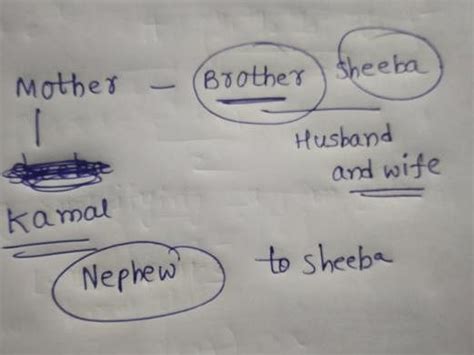 Mother — Brother Sheeba
Husband
and wife
Kamal
Nephew to sheeba